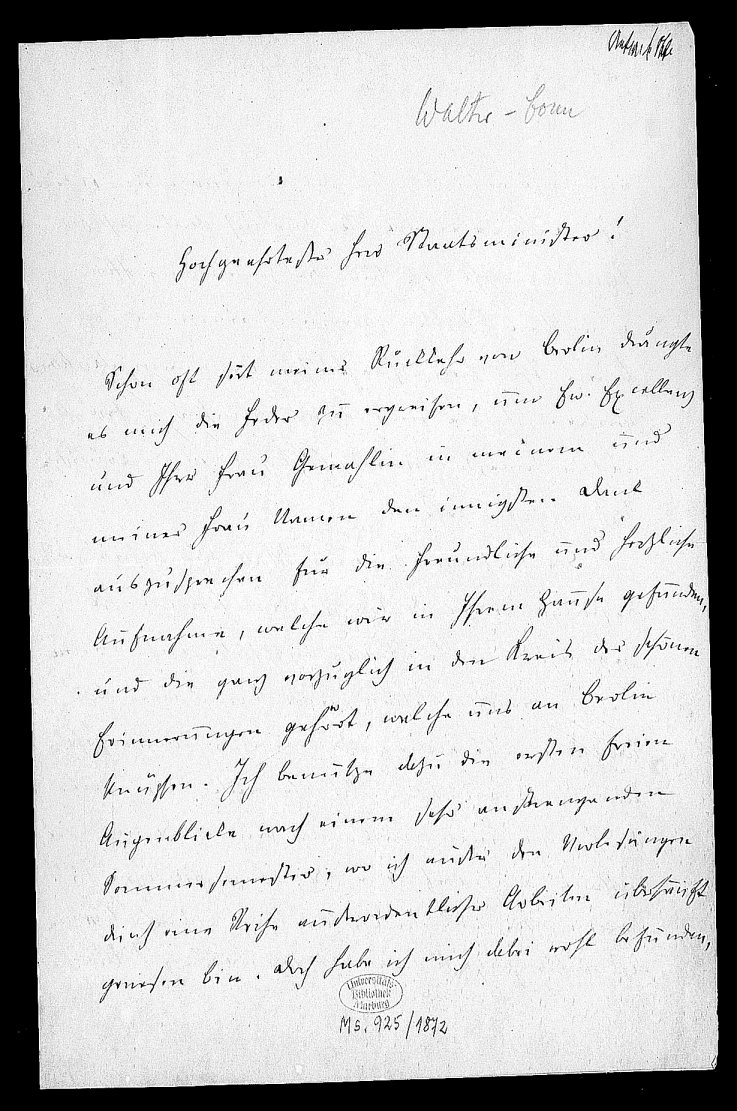 Walter - Bonn
Hochgeehrtester Herr Staatsminister!
Schon oft seit meiner Rückkehr von Berlin drängte
es mich die Feder zu ergreifen, um Ew. Excellenz
und Ihrer Frau Gemahlin in meinem und
meiner Frau Namen den innigsten Dank
auszusprechen für die freundliche und herzliche
Aufnahme, welche wir in Ihrem Hause gefunden,
und die ganz vorzüglich in den Kreis der schönen
Erinnerungen gehört, welche uns an Berlin
knüpfen. Ich benutze dazu die ersten freien
Augenblicke nach einem sehr anstrengenden
Sommersemester, wo ich außer den Vorlesungen
durch eine Reihe außerordentlicher Arbeiten überhäuft
gewesen bin. Doch habe ich mich dabei wohl befunden,
Universitäts-
Bibliothek
Marburg
Ms. 925/1872